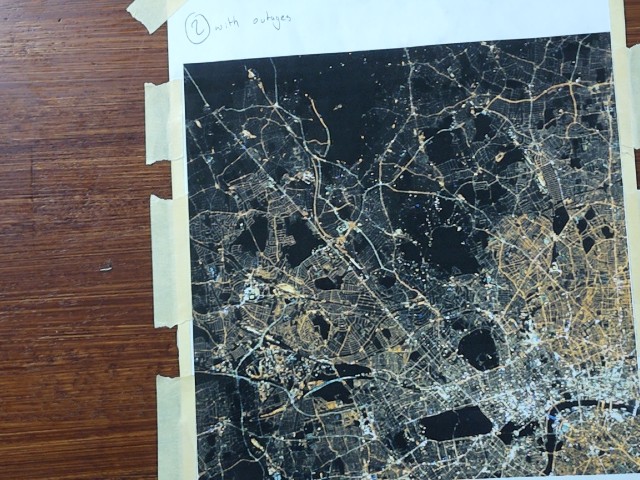 2 with outages